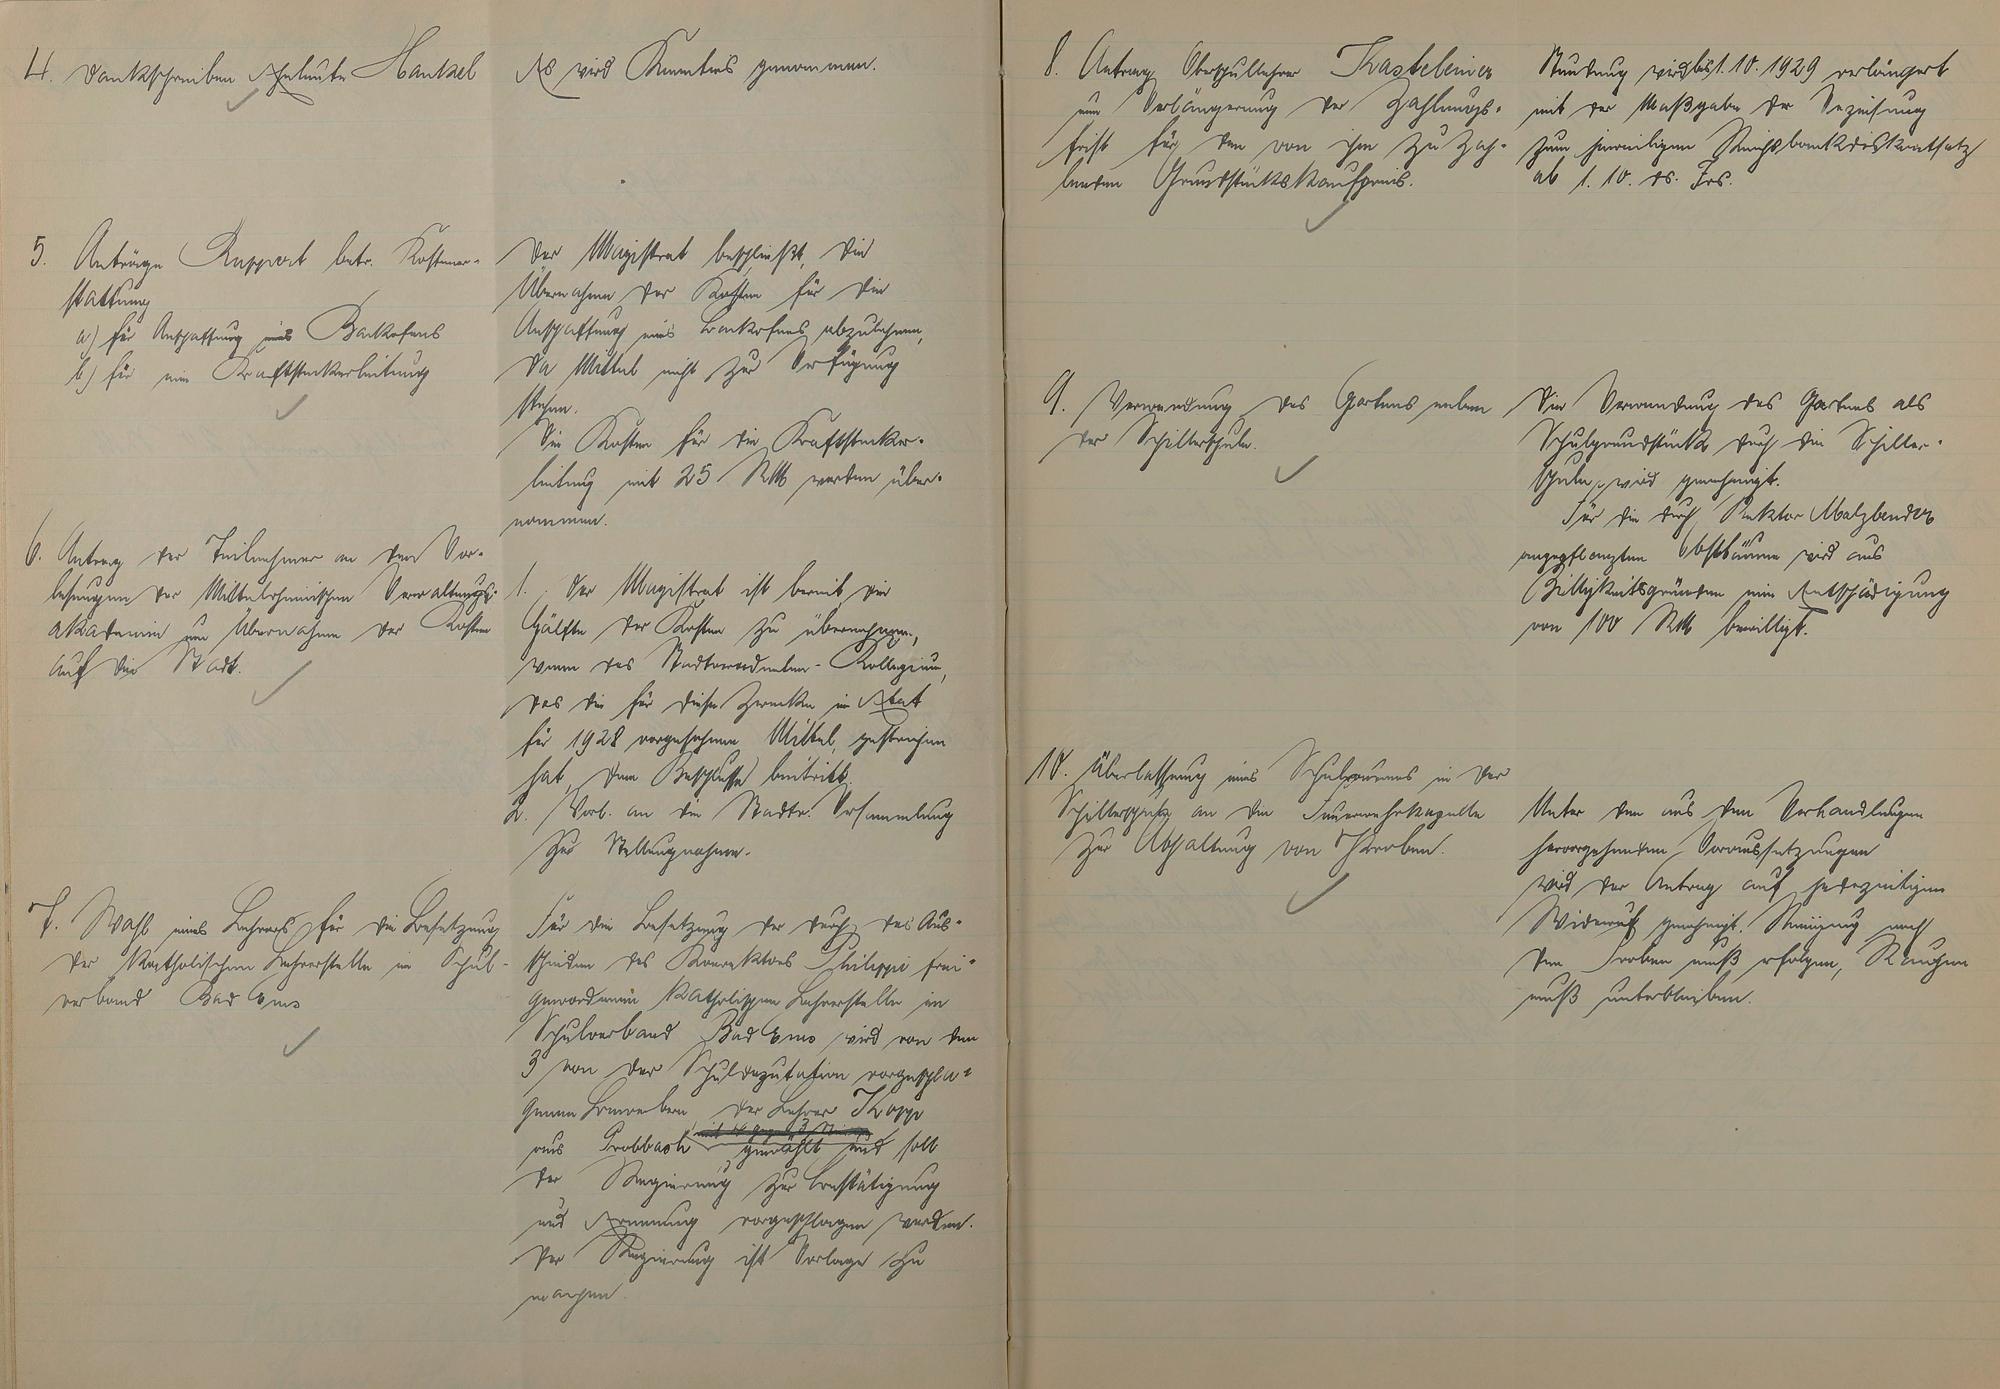 4. Dankschreiben Eheleute Hankel
Es wird Kenntnis genommen.
5. Anträge Ruppert betr. Kostener-
stattung
a) für Anschaffung eines Backofens
b) für eine Kraftsteckerleitung
Der Magistrat beschließt, die
Übernahme der Kosten für die
Anschaffung eines Backofens abzulehnen,
da Mittel nicht zur Verfügung
stehen.
Die Kosten für die Kraftstecker-
leitung mit 25 RM werden über-
nommen.
6. Antrag der Teilnehmer an den Vor-
lesungen der Mittelrheinischen Verwaltungs-
akademie um Übernahme der Kosten
auf die Stadt.
1. Der Magistrat ist bereit die
Hälfte der Kosten zu übernehmen,
wenn das Stadtverordneten-Kollegium,
das die für diese Zwecke im Etat
für 1928 vorgesehenen Mittel gestrichen
hat, dem Beschlusse beitritt.
2. Vorl. an die Stadtv. Versammlung
zur Stellungnahme.
7. Wahl eines Lehrers für die Besetzung
der katholischen Lehrerstelle im Schul-
verband Bad Ems
Für die Besetzung der durch das Aus-
scheiden des Konrektors Philippi frei-
gewordenen katholischen Lehrerstelle im
Schulverband Bad Ems wird von den
3 von der Schuldeputation vorgeschla-
genen Bewerbern der Lehrer Kopp
aus Probbach gewählt und soll
der Regierung zur Bestätigung
und Ernennung vorgeschlagen werden.
Der Regierung ist Vorlage zu
machen.
8. Antrag Oberschullehrer Kasteleiner
um Verlängerung der Zahlungs-
frist für den von ihm zu zah-
lenden Grundstückskaufpreis.
Stundung wird bis 1.10.1929 verlängert
mit der Maßgabe der Verzinsung
zum jeweiligen Reichsbankdiskontsatz
ab 1.10. ds. Jrs.
9. Verwendung des Gartens neben
der Schillerschule.
Die Verwendung des Gartens als
Schulgrundstück durch die Schiller-
schule, wird genehmigt.
Für die durch Rektor Malzbender
angepflanzten Obstbäume wird aus
Billigkeitsgründen eine Entschädigung
von 100 RM bewilligt.
10. Überlassung eines Schulraumes in der
Schillerschule an die Feuerwehrkapelle
zur Abhaltung von Proben.
Unter den aus den Verhandlungen
hervorgehenden Voraussetzungen
wird der Antrag auf jederzeitigen
Widerruf genehmigt. Reinigung nach
den Proben muß erfolgen, Rauchen
muß unterbleiben.